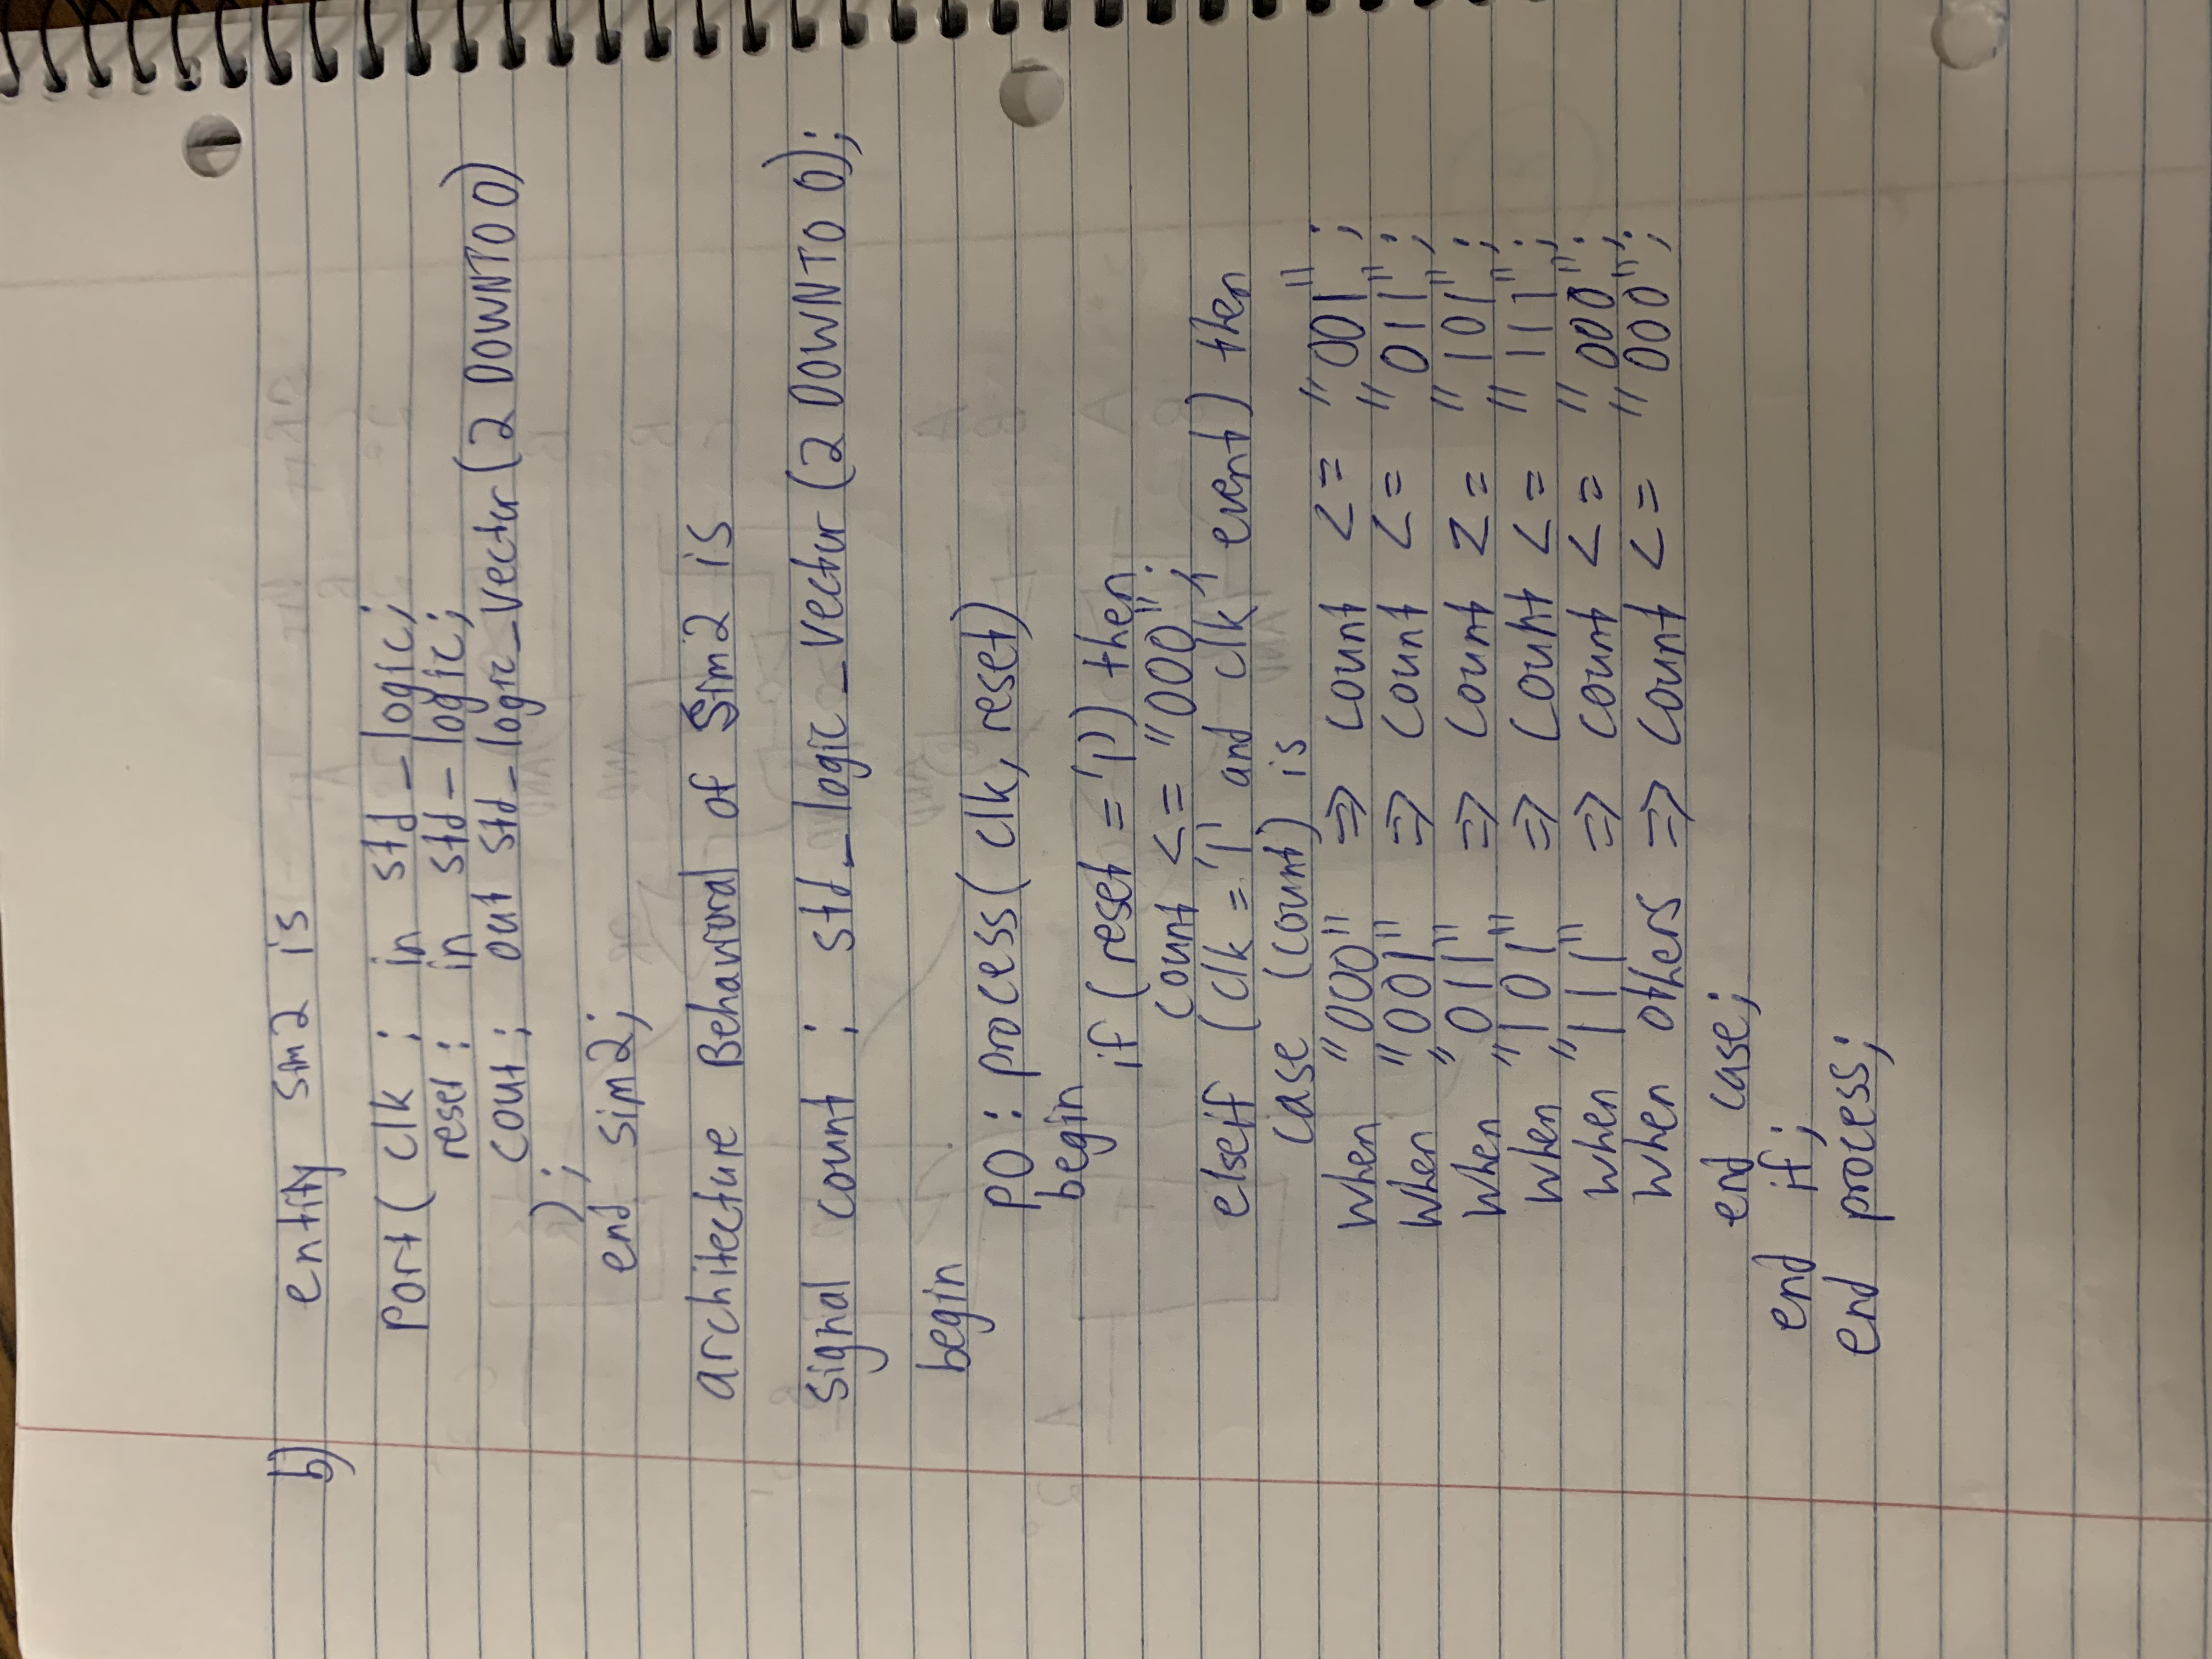 b) entity sim2 is
port( clk : in std_logic;
reset : in std_logic;
cout : out std_logic_vector(2 DOWNTO 0)
);
end sim2;
architecture Behavioral of Sim2 is
signal count : std_logic_vector(2 DOWNTO 0);
begin
P0 : process( clk, reset)
begin
if (reset = '1') then
count <= "000";
elseif (clk = '1' and clk ' event) then
case (count) is
when "000" => count <= "001";
when "001" => count <= "011";
when "011" => count <= "101";
when "101" => count <= "111";
when "111" => count <= "000";
when others => count <= "000";
end case;
end if;
end process;